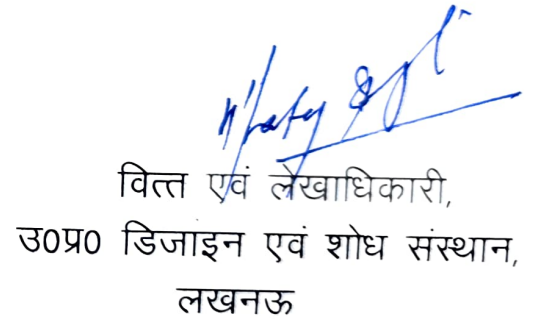 वित्त एवं लेखाधिकारी,
उ0प्र0 डिजाइन एवं शोध संस्थान,
लखनऊ